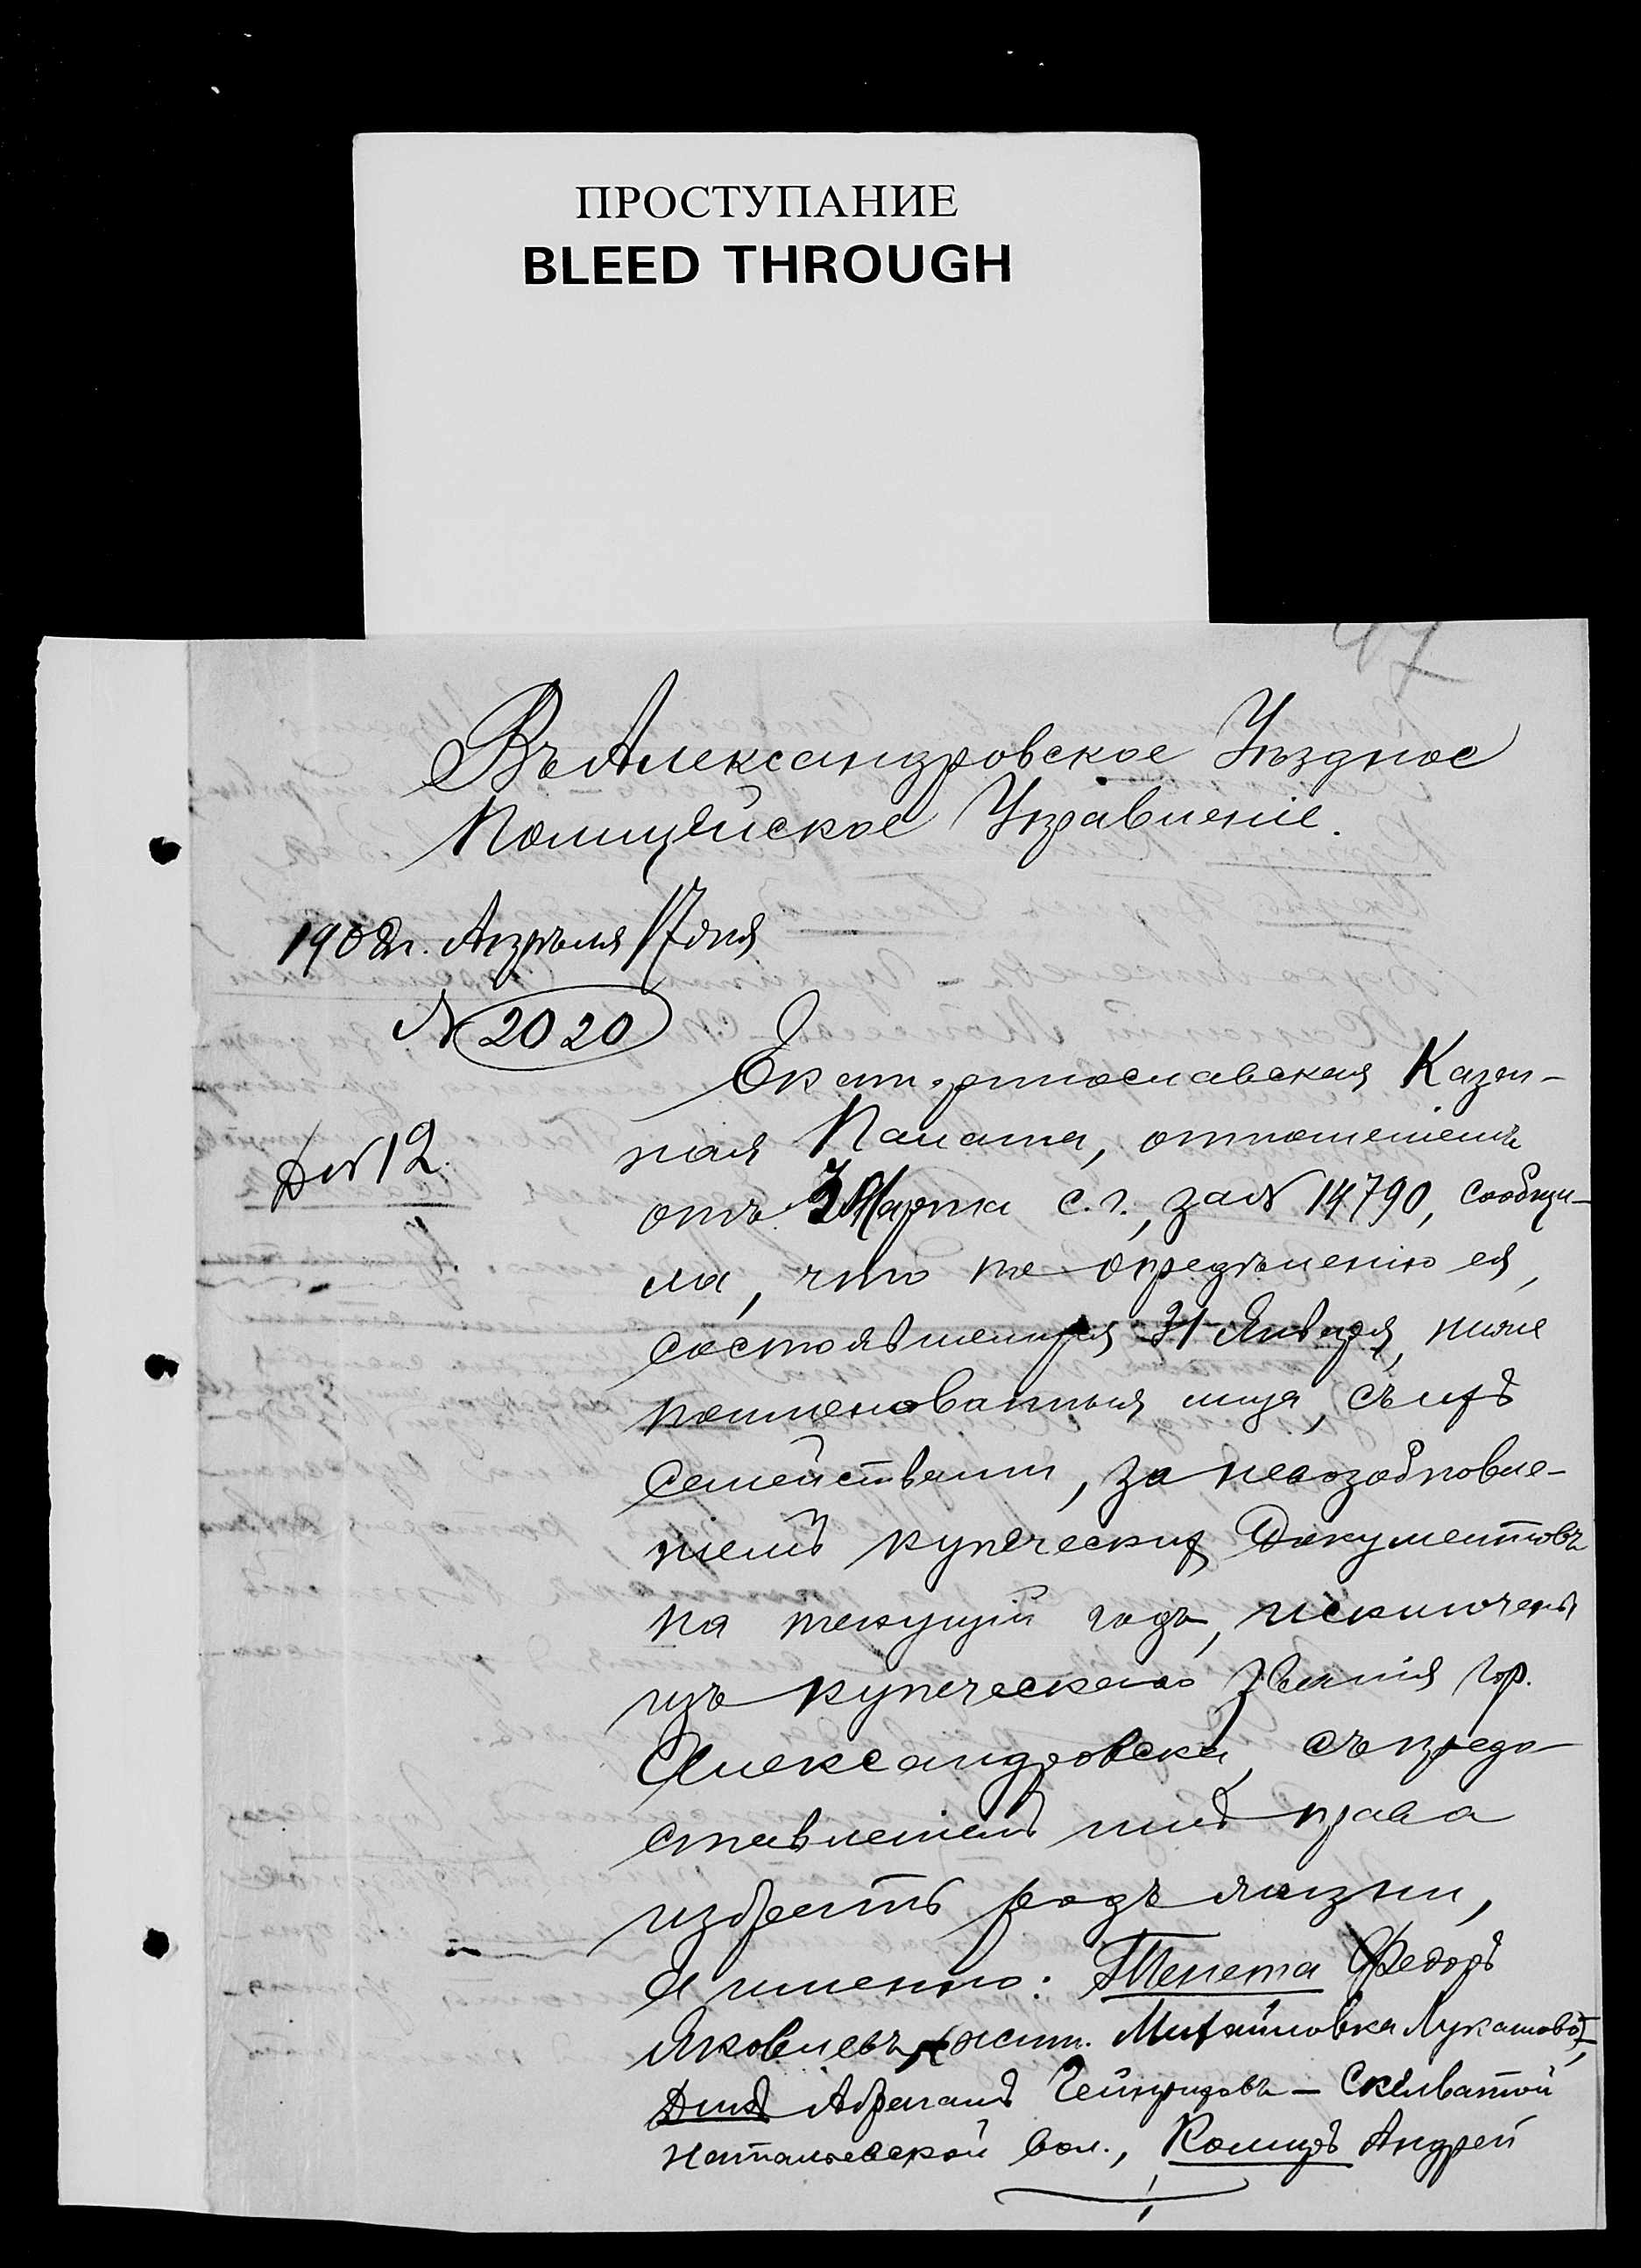 ПРОСТУПАНИЕ
BLEED THROUGH
47
Въ Александровское Уѣздное
Полицейское Управленіе.
1902 г. Апрѣля 17 дня
№ 2020
Д № 12.
Екатеринославская Казен-
ная Палата, отношеніемъ
отъ Марта с. г., за № 14790, сообщи-
ла, что по опредѣленію ея,
состоявшемуся 31 Января, ниже
поименованныя лица, съ ихъ
семействами, за невозобновле-
ніемъ купеческихъ документовъ
на текущій годъ, исключены
изъ купеческаго званія гор.
Александровска, съ предо-
ставленіемъ имъ права
избрать родъ жизни,
а именно: Тенета Федоръ
Яковлевъ, (жит. Михайловка Лукашовой),
Дикъ Абрамъ Гейнриховъ – Скелватой
Натальевской вол., Комицъ Андрей